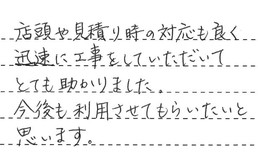 店頭や見積り時の対応も良く
迅速に工事をしていただいて
とても助かりました。
今後も利用させてもらいたいと
思います。